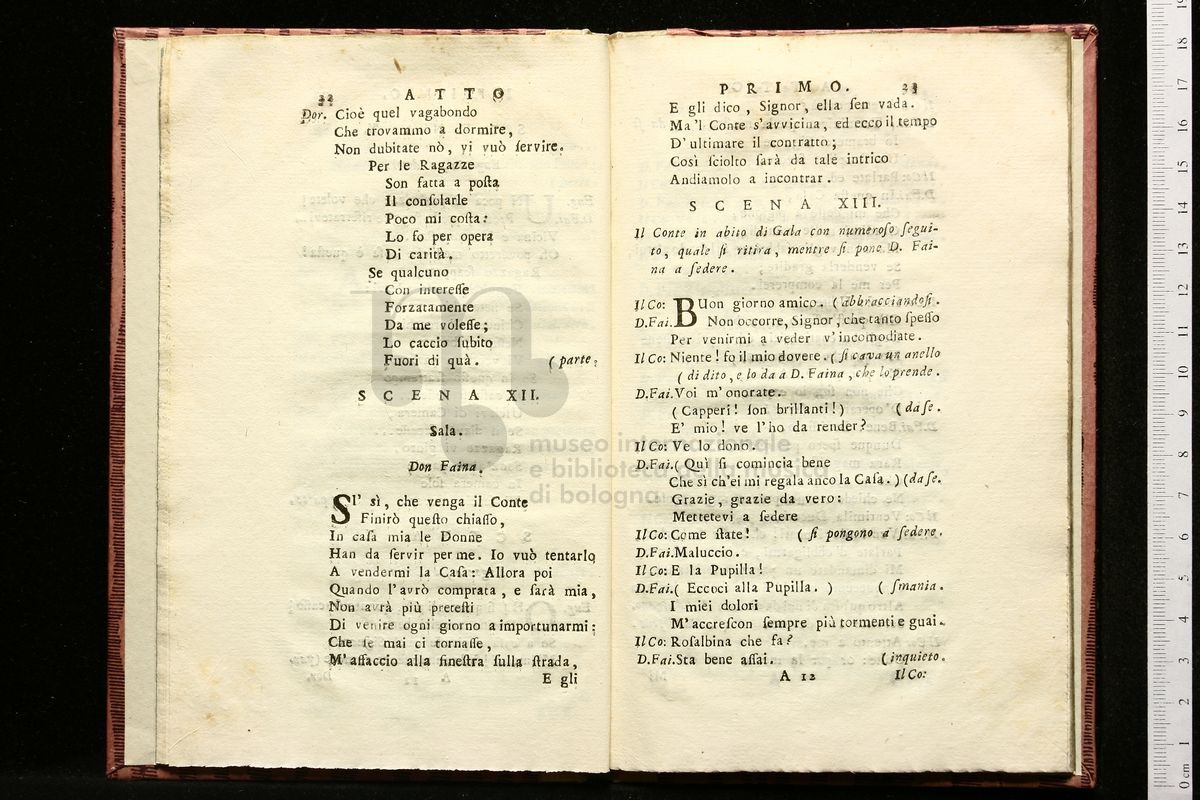 22 ATTO
Dor. Cioè quel vagabondo
Che trovammo a dormire,
Non dubitate nò, vi vuò ſervire.
Per le Ragazze
Son fatta a poſta
Il conſolarle
Poco mi coſta:
Lo fo per opera
Di carità.
Se qualcuno
Con intereſſe
Forzatamente
Da me voleſſe;
Lo caccio ſubito
Fuori di quà. (parte.
SCENA XII.
Sala.
Don Faina.
SI' sì, che venga il Conte
Finirò queſto chiaſſo,
In caſa mia le Donne
Han da ſervir per me. Io vuò tentarlo
A vendermi la Caſa: Allora poi
Quando l'avrò comprata, e ſarà mia,
Non avrà più preteſti
Di venire ogni giorno a importunarmi;
Che ſe mai ci tornaſſe,
M'affaccio alla fineſtra ſulla ſtrada,
E gli
PRIMO. 23
E gli dico, Signor, ella ſen vada.
Ma'l Conte s'avvicina, ed ecco il tempo
D'ultimare il contratto;
Così ſciolto ſarà da tale intrico
Andiamolo a incontrar.
SCENA XIII.
Il Conte in abito di Gala con numeroſo ſegui-
to, quale ſi ritira, mentre ſi pone D. Fai-
na a ſedere.
Il Co: BUon giorno amico. (abbracciandoſi.
D.Fai. Non occorre, Signor, che tanto ſpeſſo
Per venirmi a veder v'incomodiate.
Il Co: Niente! fo il mio dovere. (ſi cava un anello
(di dito, e lo da a D. Faina, che lo prende.
D.Fai. Voi m'onorate.
(Capperi! ſon brillanti!) (da ſe.
E' mio! ve l'ho da render?
Il Co: Ve lo dono.
D.Fai. (Quì ſi comincia bene
Che sì ch'ei mi regala anco la Caſa.) (da ſe.
Grazie, grazie da vero:
Mettetevi a ſedere
Il Co: Come ſtate! (ſi pongono a ſedere.
D.Fai. Maluccio.
Il Co: E la Pupilla!
D.Fai. (Eccoci alla Pupilla.) (ſmania.
I miei dolori
M'accreſcon ſempre più tormenti e guai.
Il Co: Roſalbina che fa?
D.Fai. Sta bene aſſai. (inquieto.
A 12 Il Co:
museo internazionale
e biblioteca della musica
di bologna